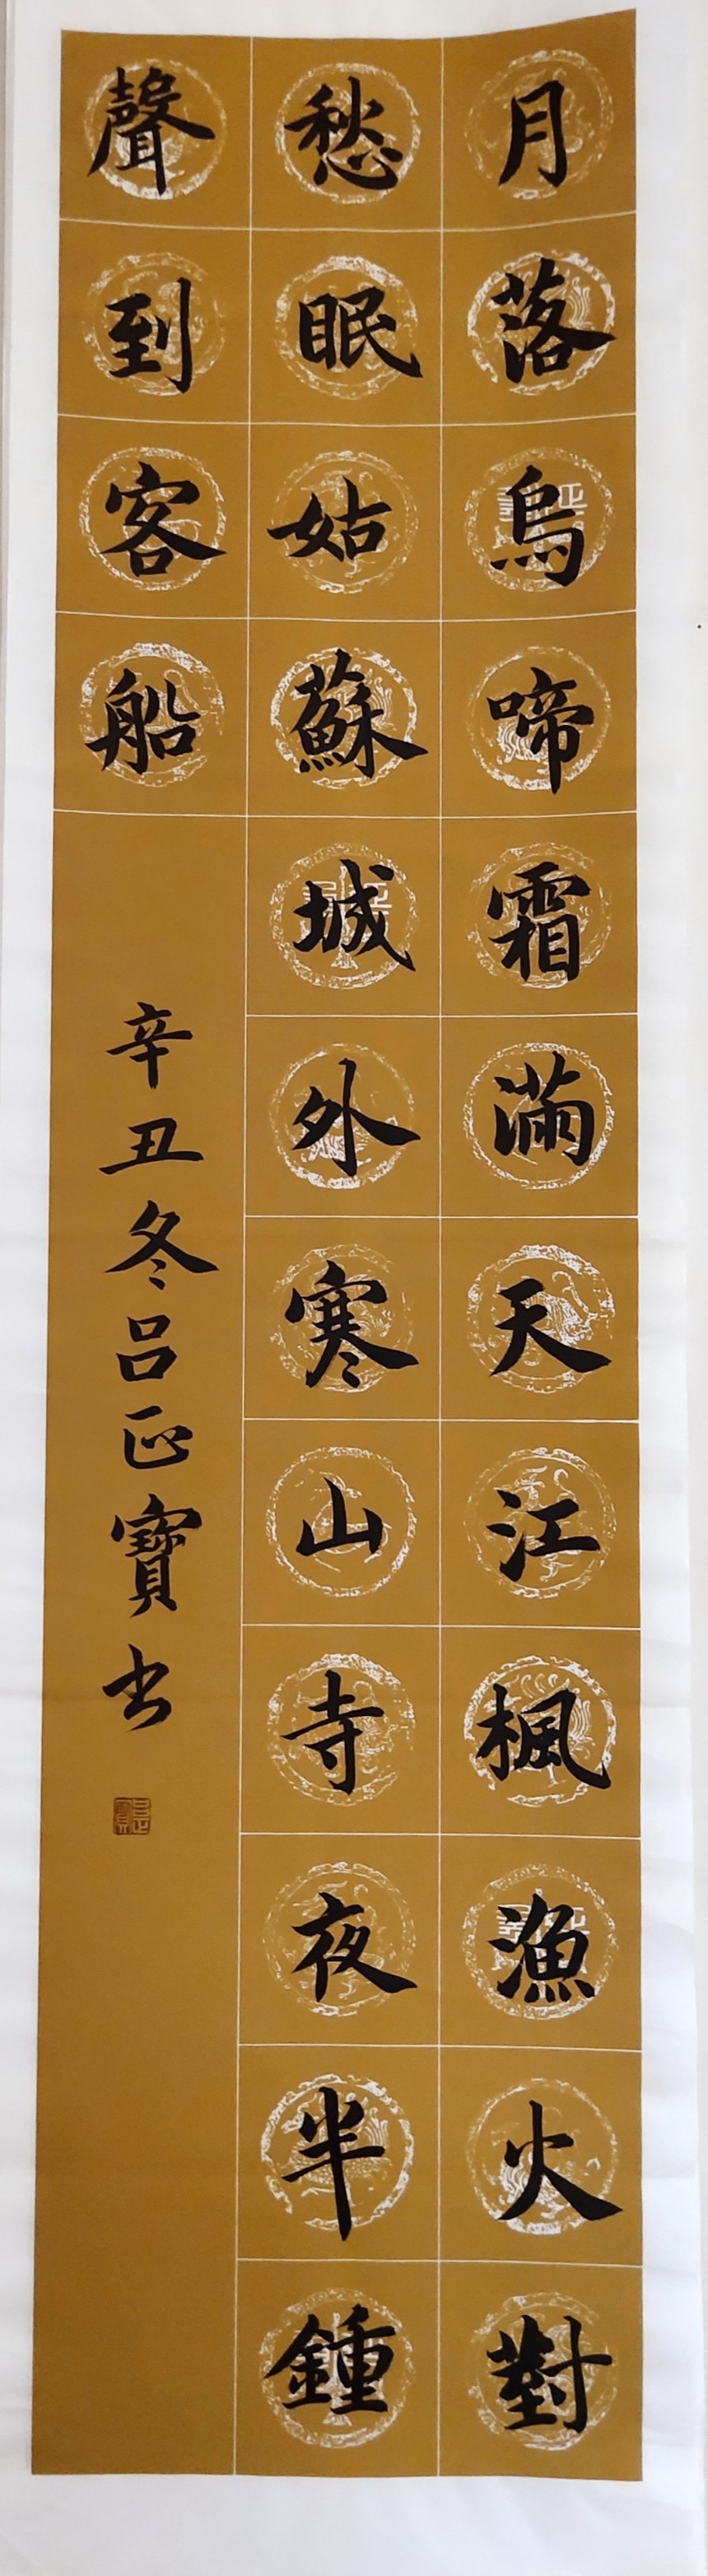 月落烏啼霜滿天江楓漁火對
愁眠姑蘇城外寒山寺夜半鍾
聲到客船
辛丑冬吕正寶书